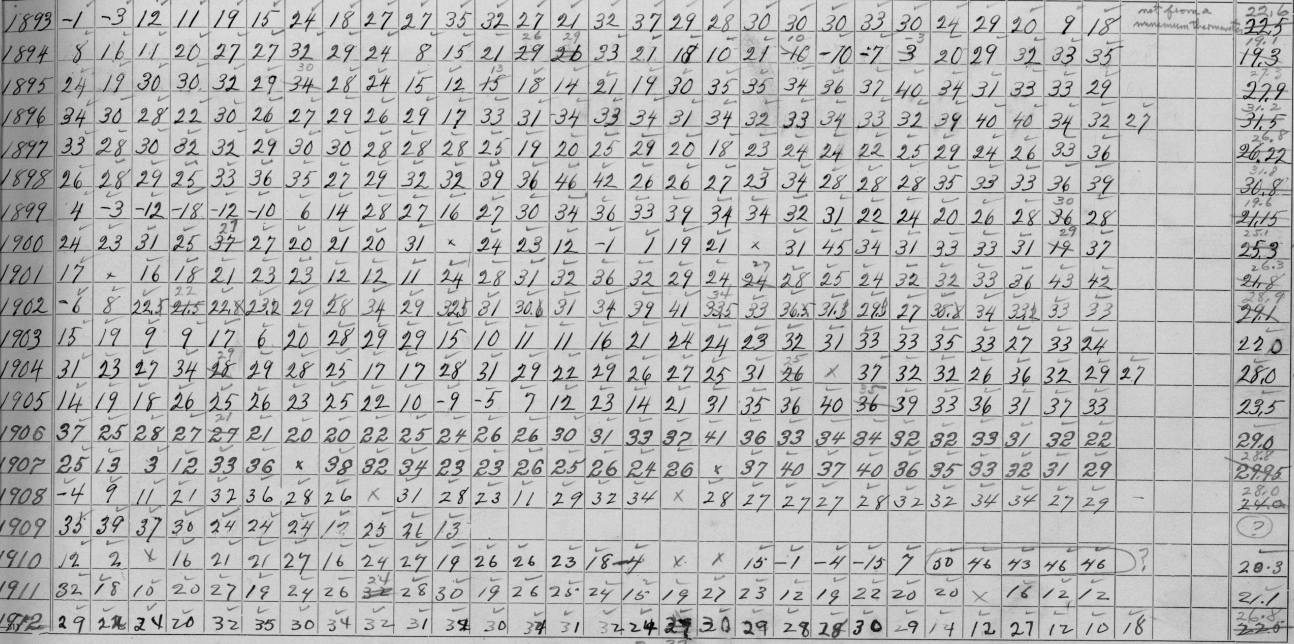 1893 -1 -3 12 11 19 15 24 18 27 27 35 32 27 21 32 37 29 28 30 30 30 33 30 24 29 20 9 18 not from a minimum thermometer 22.6 22.5
1894 8 16 11 20 27 27 32 29 24 8 15 21 26 29 29 26 33 21 18 10 21 10 -10 -10 -7 -3 3 20 29 32 33 35 19.1 19.3
1895 24 19 30 30 32 29 30 34 28 24 15 12 13 15 18 14 21 19 30 35 35 34 36 37 40 34 31 33 33 29 27.9
1896 34 30 28 22 30 26 27 29 26 29 17 33 31 34 33 34 31 34 32 33 34 33 32 39 40 40 34 32 27 31.2 31.5
1897 33 28 30 32 32 29 30 30 28 28 28 25 19 20 25 29 20 18 23 24 24 22 25 29 24 26 33 36 26.8 26.22
1898 26 28 29 25 33 36 35 27 29 32 32 39 36 46 42 26 26 27 23 34 28 28 28 35 33 33 36 39 31.8 30.8
1899 4 -3 -12 -18 -12 -10 6 14 28 27 16 27 30 34 36 33 39 34 34 32 31 22 24 20 26 28 30 36 28 19.6 21.15
1900 24 23 31 25 27 37 27 20 21 20 31 x 24 23 12 -1 1 19 21 x 31 45 34 31 33 33 31 29 19 37 25.1 25.3
1901 17 x 16 18 21 23 23 12 12 11 24 28 31 32 36 32 29 24 27 24 28 25 24 32 32 33 36 43 42 26.3 21.8
1902 -6 8 22.5 22 21.5 22.8 23.2 29 28 34 29 32.5 31 30.6 31 34 39 41 34 33.5 33 36.5 31.8 29.8 27 30.8 34 33.2 33 33 28.9 29.1
1903 15 19 9 9 17 6 20 28 29 29 15 10 11 11 16 21 24 24 23 32 31 33 33 35 33 27 33 24 22.0
1904 31 23 27 34 29 28 29 28 25 17 17 28 31 29 22 29 26 27 25 31 25 26 x 37 32 32 26 36 32 29 27 28.0
1905 14 19 18 26 25 26 23 25 22 10 -9 -5 7 12 23 14 21 31 35 36 40 35 36 39 33 36 31 37 33 23.5
1906 37 25 28 27 21 27 21 20 20 22 25 24 26 26 30 31 33 37 41 36 33 34 34 32 32 33 31 32 22 29.0
1907 25 13 3 12 33 36 x 38 32 34 23 23 26 25 26 24 26 x 37 40 37 40 36 35 33 32 31 29 28.8 29.95
1908 -4 9 11 21 32 36 28 26 x 31 28 23 11 29 32 34 x 28 27 27 27 28 32 32 34 34 27 29 - 28.0 24.0
1909 35 39 37 30 24 24 24 12 25 26 13 ?
1910 12 2 x 16 21 21 27 16 24 27 19 26 26 23 18 -4 x x 15 -1 -4 -15 7 50 46 43 46 46 ? 20.3
1911 32 18 10 20 27 19 24 26 24 28 30 19 26 25 24 15 19 27 23 12 19 22 20 20 x 16 12 12 21.1
1912 29 24 20 32 35 30 34 32 31 30 31 32 24 30 29 28 28 30 29 14 12 27 12 10 18 26.8